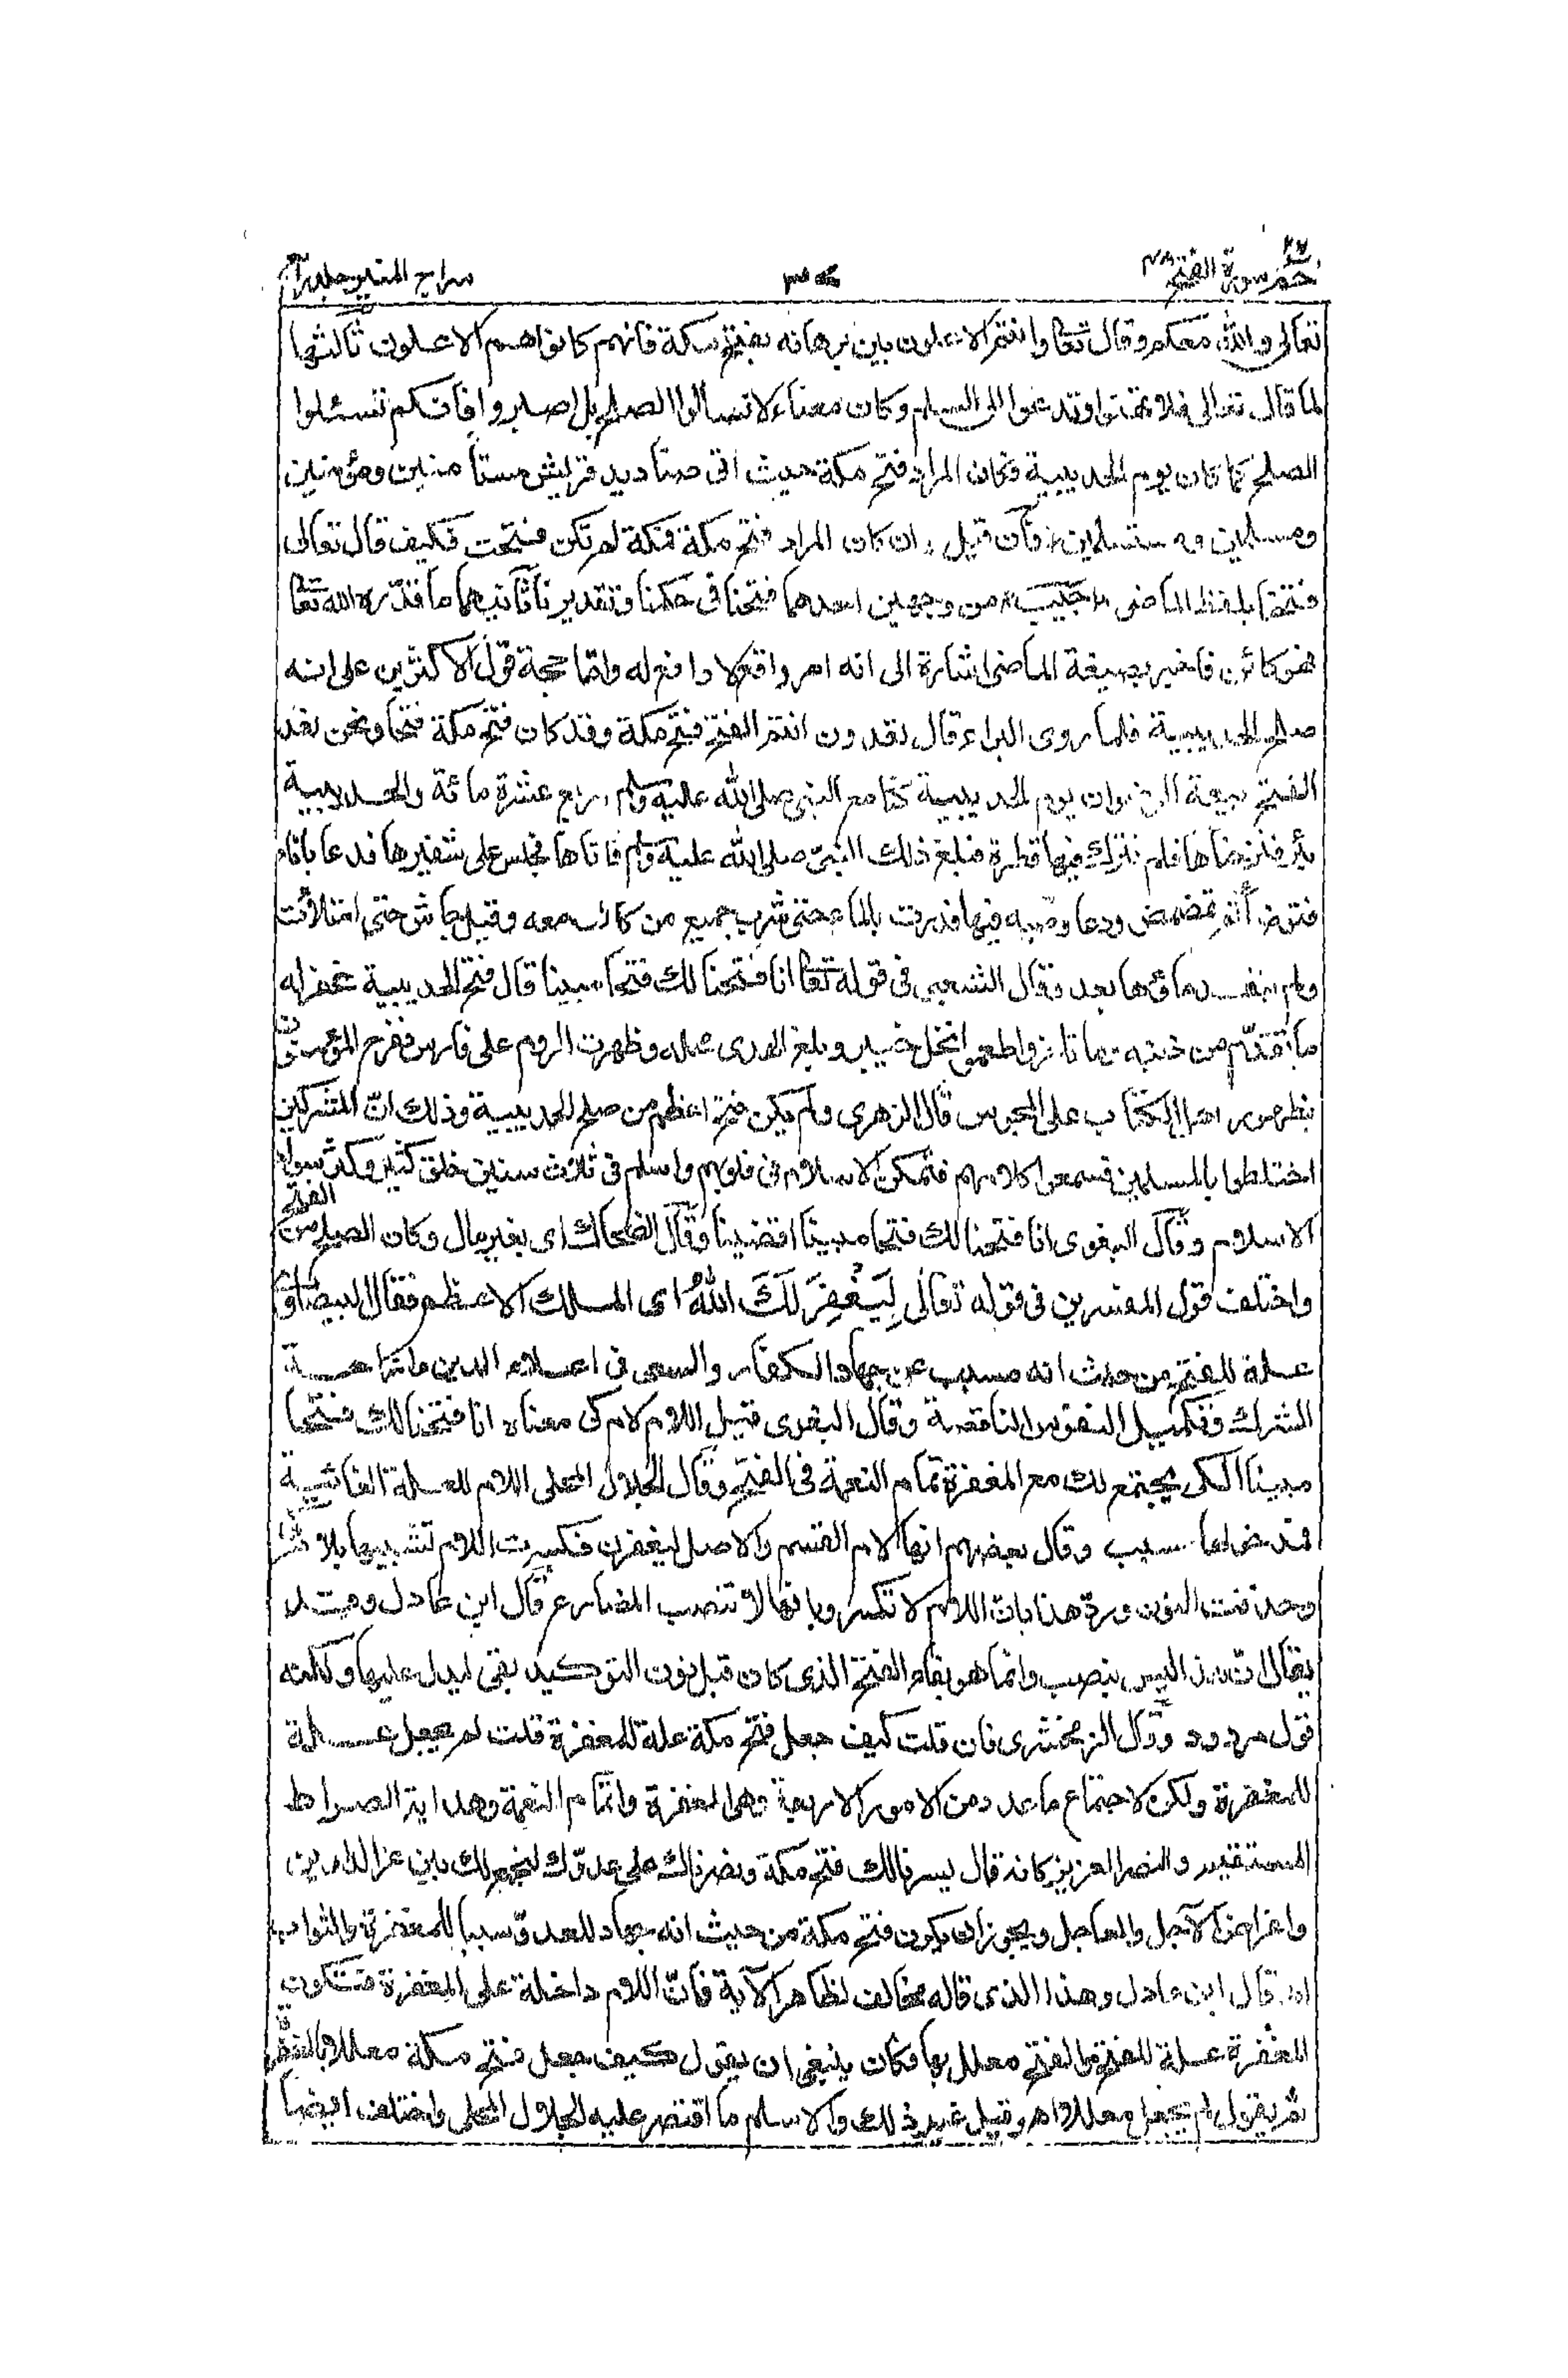 حٰمٓ ٢٦ سورة الفتح ٤٨
سراج المنير جلد رابع
تعالى والله معكم وقال تعا وانتم الاعلون بين برهانه بفتح مكة فانهم كانوا هم الاعلون ثالثها
لما قال تعالى فلا تهنوا وتدعوا الى السلم وكان معناه لا تسالوا الصلح بل اصبروا فانكم تسئلوا
الصلح كما كان يوم الحديبية وكان المراد فتح مكة حيث اتى صناديد قريش مستأمنين ومؤمنين
ومسلمين ومستسلمين فآن قيل ان كان المراد فتح مكة فمكة لم تكن فتحت فكيف قال تعالى
فتحنا بلفظ الماضى اجيب من وجهين احدهما فتحنا فى حكمنا وتقديرنا ثانيهما ما قدّره الله تعا
فهو كائن فاخبر بصيغة الماضى اشارة الى انه امر واقع لا دافع له واما حجة قول الاكثرين على انه
صلح الحديبية فلما روى البراء قال تعدون انتم الفتح فتح مكة وقد كان فتح مكة فتحا ونحن نعد
الفتح بيعة الرضوان يوم الحديبية كنا مع النبى صلى الله عليه وسلم اربع عشرة مائة والحديبية
بئر فنزحناها فلم نترك فيها قطرة فبلغ ذلك النبىّ صلى الله عليه وسلم فاتاها فجلس على شفيرها فدعا باناء
فتوضأ ثم تمضمض ودعا وصبه فيها فدرت بالماء حتى شرب جميع من كان معه وقيل جاش حتى امتلأت
ولم ينفد ماؤها بعد وقال الشعبى فى قوله تعا انا فتحنا لك فتحا مبينا قال فتح الحديبية غفر له
ما تقدّم من ذنبه وما تاخر واطعموا نخل خيبر وبلغ الهدى محله وظهرت الروم على فارس ففرح المؤمنون
بظهور اهل الكتاب على المجوس قال الزهرى ولم يكن فتح اعظم من صلح الحديبية وذلك انّ المشركين
اختلطوا بالمسلمين فسمعوا كلامهم فتمكن الاسلام فى قلوبهم واسلم فى ثلاث سنين خلق كثير وكثر سواد
الاسلام وقال البغوى انا فتحنا لك فتحا مبينا اقضينا وقال الضحاك اى بغير مال وكان الصلح من الفتح
واختلف قول المفسرين فى قوله تعالى لِيَغْفِرَ لَكَ اللهُ اى الملك الاعظم فقال البيضاوى
علة للفتح من حيث انه مسبب عن جهاد الكفار والسعى فى اعلاء الدين وازاحة
الشرك وتكميل النفوس الناقصة وقال البغوى قيل اللام لام كى معناه انا فتحنا لك فتحا
مبينا لكى يجتمع لك مع المغفرة تمام النعمة فى الفتح وقال الجلال المحلى اللام للعلة الغائية
فمدخولها سبب وقال بعضهم انها لام القسم والاصل ليغفرن فكسرت اللام تشبيها بلام كى
وحذفت النون وردّ هذا بان اللام لا تكسر وبانها لا تنصب المضارع قال ابن عادل وقد
يقال انّ هذا ليس بنصب وانما هو بقاء الفتح الذى كان قبل نون التوكيد بقى ليدل عليها ولكنه
قول مردود وقال الزمخشرى فان قلت كيف جعل فتح مكة علة للمغفرة قلت لم يجعل علة
للمغفرة ولكن لاجتماع ما عدد من الامور الاربعة وهى المغفرة واتمام النعمة وهداية الصراط
المستقيم والنصر العزيز كانه قال يسرنا لك فتح مكة ونصرناك على عدوّك لنجمع لك بين عز الدارين
واغراض الآجل والعاجل ويجوز ان يكون فتح مكة من حيث انه جهاد للعدوّ سببا للمغفرة والثواب
اه قال ابن عادل وهذا الذى قاله مخالف لظاهر الآية فانّ اللام داخلة على المغفرة فتكون
المغفرة علة للفتح والفتح معلل بها فكان ينبغى ان يقول كيف جعل فتح مكة معللا بالمغفرة
ثم يقول لم يجعل معللا اه وقيل غير ذلك والاسلم ما اقتصر عليه الجلال المحلى واختلف ايضا